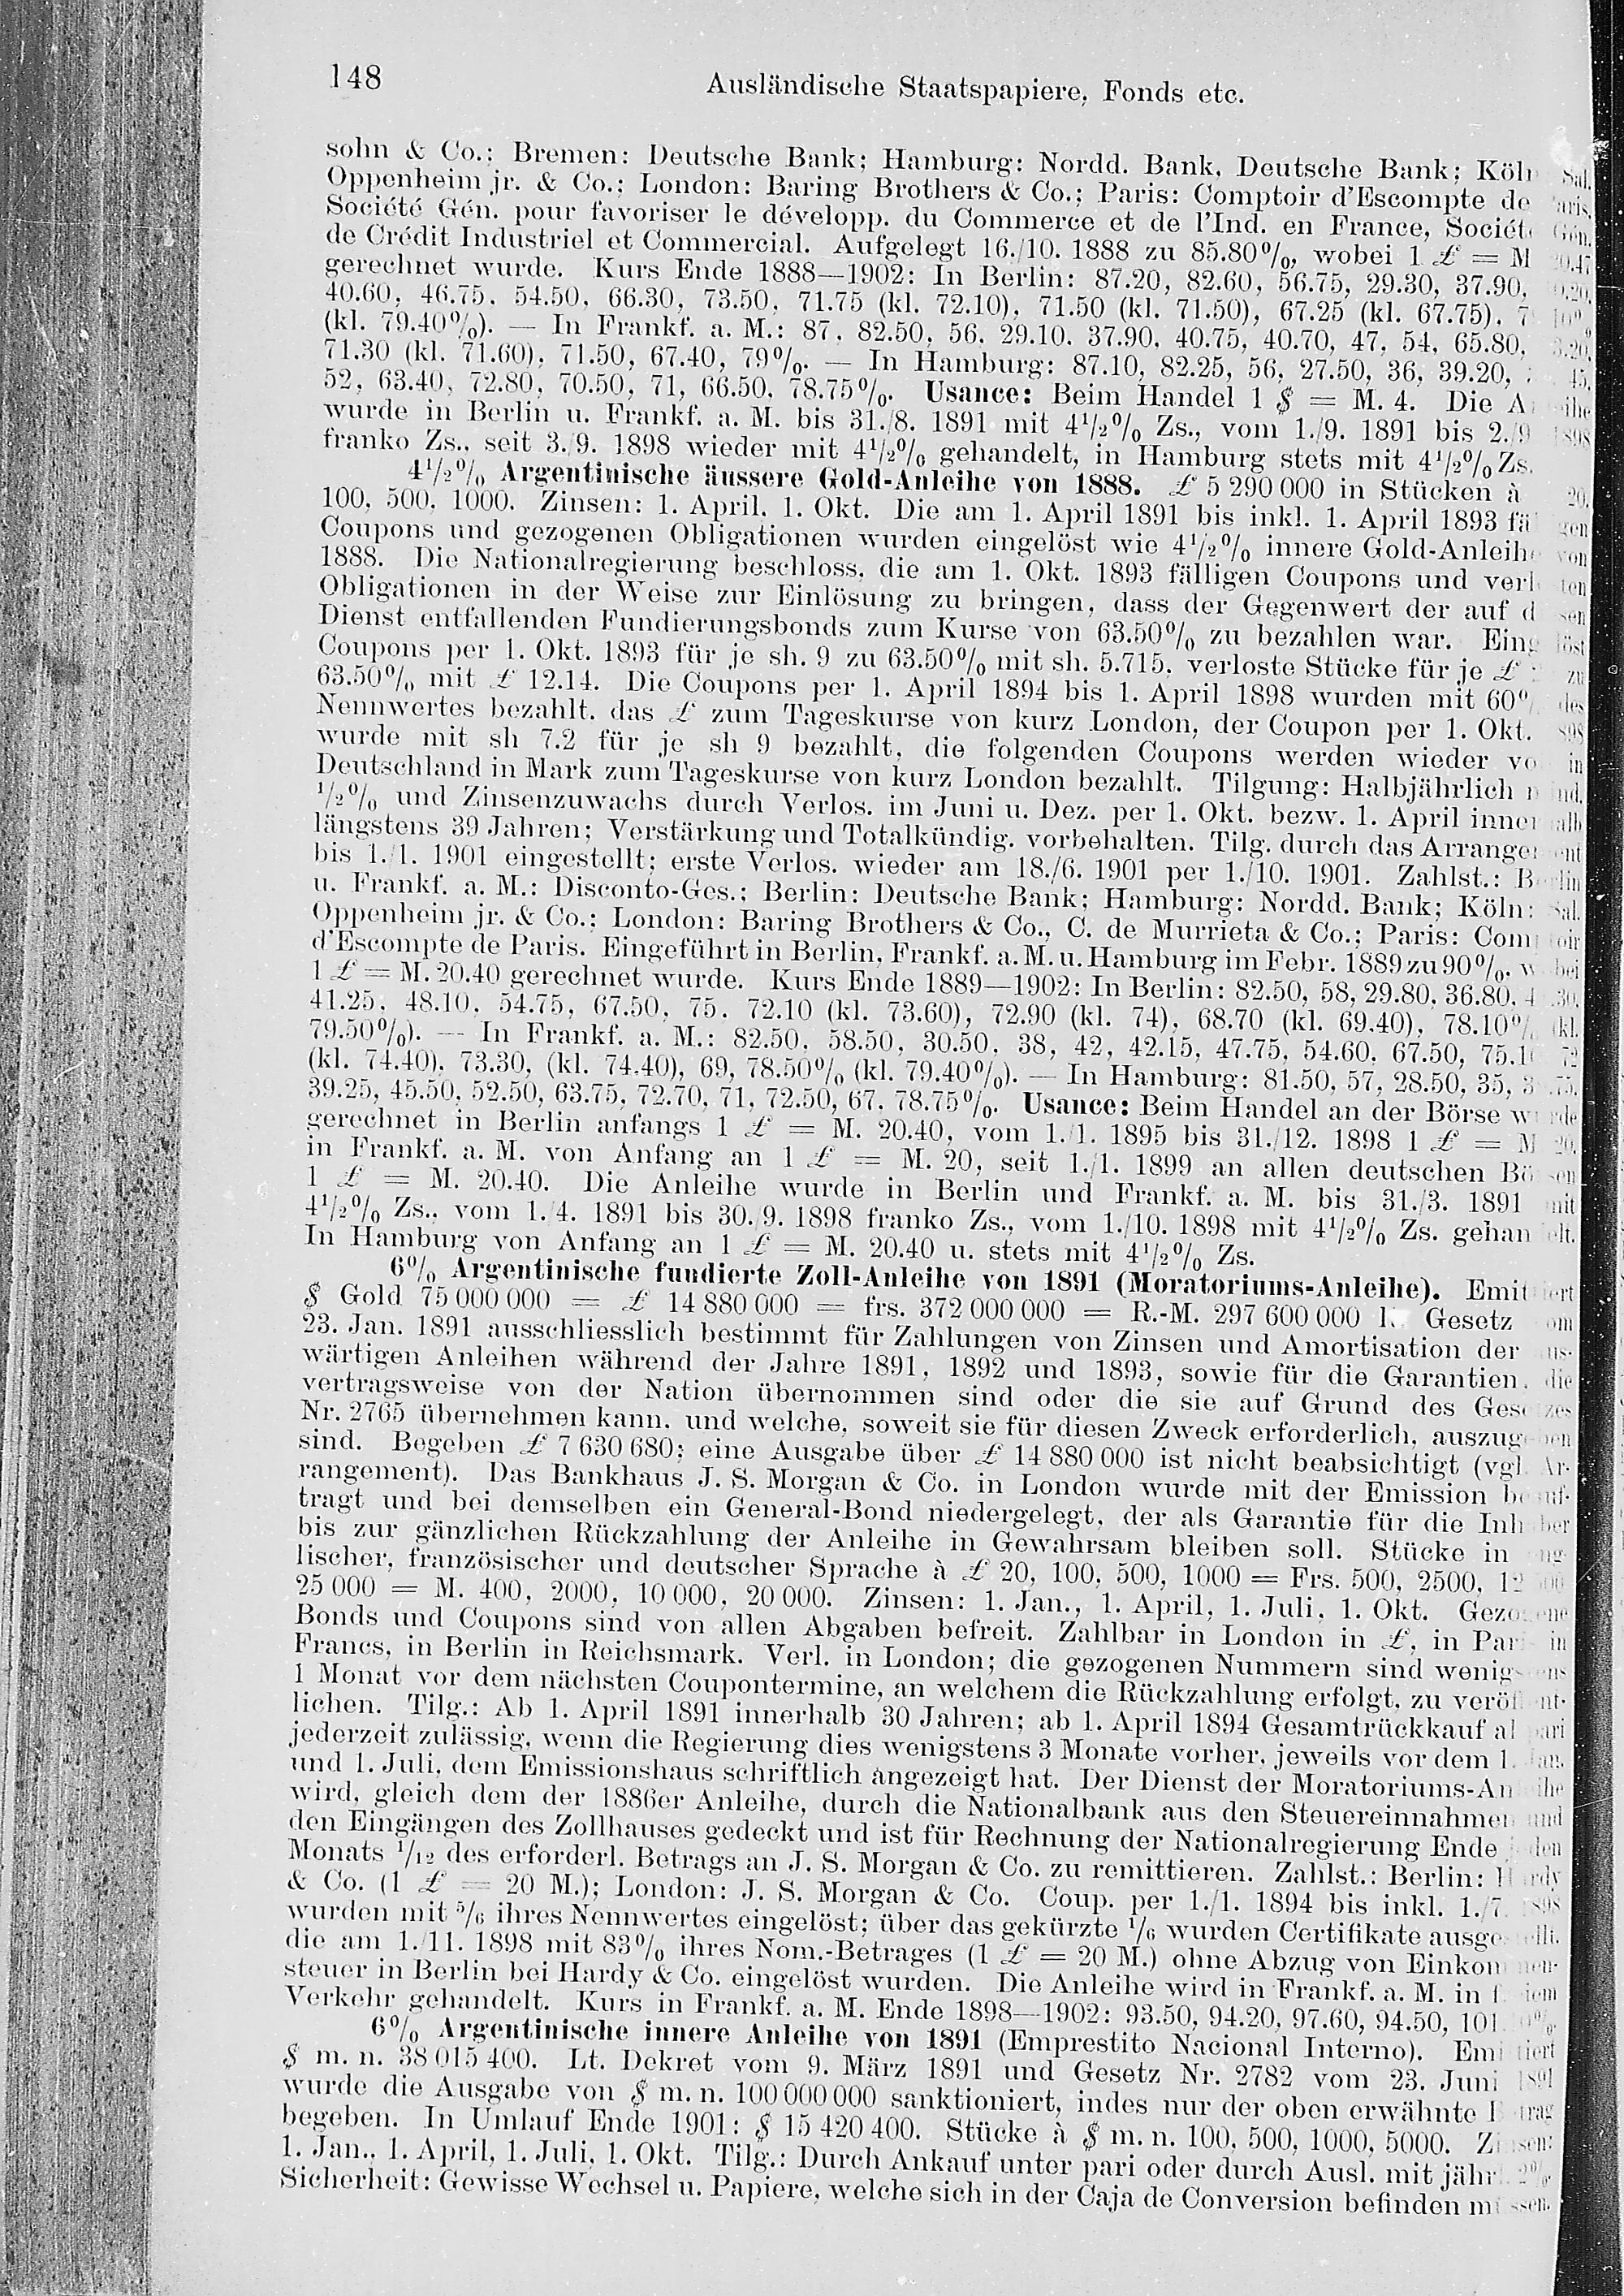 148
Ausländische Staatspapiere, Fonds etc.
sohn & Co.; Bremen: Deutsche Bank; Hamburg: Nordd. Bank, Deutsche Bank; Köln Sal.
Oppenheim jr. & Co.; London: Baring Brothers & Co.; Paris: Comptoir d'Escompte de Paris,
Société Gén. pour favoriser le développ. du Commerce et de l'Ind. en France, Société Gén.
de Crédit Industriel et Commercial. Aufgelegt 16./10. 1888 zu 85.80%, wobei 1 £ = M 20.47
gerechnet wurde. Kurs Ende 1888—1902: In Berlin: 87.20, 82.60, 56.75, 29.30, 37.90,
40.60, 46.75, 54.50, 66.30, 73.50, 71.75 (kl. 72.10), 71.50 (kl. 71.50), 67.25 (kl. 67.75),
(kl. 79.40%). — In Frankf. a. M.: 87, 82.50, 56, 29.10, 37.90, 40.75, 40.70, 47, 54, 65.80,
71.30 (kl. 71.60), 71.50, 67.40, 79%. — In Hamburg: 87.10, 82.25, 56, 27.50, 36, 39.20, 45,
52, 63.40, 72.80, 70.50, 71, 66.50, 78.75%. Usance: Beim Handel 1 $ = M. 4. Die Anleihe
wurde in Berlin u. Frankf. a. M. bis 31./8. 1891 mit 4½% Zs., vom 1./9. 1891 bis 2./9 1898
franko Zs., seit 3./9. 1898 wieder mit 4½% gehandelt, in Hamburg stets mit 4½% Zs.
4½% Argentinische äussere Gold-Anleihe von 1888. £ 5 290 000 in Stücken à 20,
100, 500, 1000. Zinsen: 1. April, 1. Okt. Die am 1. April 1891 bis inkl. 1. April 1893 fälligen
Coupons und gezogenen Obligationen wurden eingelöst wie 4½% innere Gold-Anleihe von
1888. Die Nationalregierung beschloss, die am 1. Okt. 1893 fälligen Coupons und verlosten
Obligationen in der Weise zur Einlösung zu bringen, dass der Gegenwert der auf diesen
Dienst entfallenden Fundierungsbonds zum Kurse von 63.50% zu bezahlen war. Eingelöst
Coupons per 1. Okt. 1893 für je sh. 9 zu 63.50% mit sh. 5.715, verloste Stücke für je £ zu
63.50% mit £ 12.14. Die Coupons per 1. April 1894 bis 1. April 1898 wurden mit 60% des
Nennwertes bezahlt, das £ zum Tageskurse von kurz London, der Coupon per 1. Okt. 1898
wurde mit sh 7.2 für je sh 9 bezahlt, die folgenden Coupons werden wieder voll in
Deutschland in Mark zum Tageskurse von kurz London bezahlt. Tilgung: Halbjährlich mind.
½% und Zinsenzuwachs durch Verlos. im Juni u. Dez. per 1. Okt. bezw. 1. April innerhalb
längstens 39 Jahren; Verstärkung und Totalkündig. vorbehalten. Tilg. durch das Arrangement
bis 1./1. 1901 eingestellt; erste Verlos. wieder am 18./6. 1901 per 1./10. 1901. Zahlst.: Berlin
u. Frankf. a. M.: Disconto-Ges.; Berlin: Deutsche Bank; Hamburg: Nordd. Bank; Köln: Sal.
Oppenheim jr. & Co.; London: Baring Brothers & Co., C. de Murrieta & Co.; Paris: Comptoir
d'Escompte de Paris. Eingeführt in Berlin, Frankf. a. M. u. Hamburg im Febr. 1889 zu 90%, wobei
1 £ = M. 20.40 gerechnet wurde. Kurs Ende 1889—1902: In Berlin: 82.50, 58, 29.80, 36.80,
41.25, 48.10, 54.75, 67.50, 75, 72.10 (kl. 73.60), 72.90 (kl. 74), 68.70 (kl. 69.40), 78.10% (kl.
79.50%). — In Frankf. a. M.: 82.50, 58.50, 30.50, 38, 42, 42.15, 47.75, 54.60, 67.50, 75.10, 72
(kl. 74.40), 73.30, (kl. 74.40), 69, 78.50% (kl. 79.40%). — In Hamburg: 81.50, 57, 28.50, 35,
39.25, 45.50, 52.50, 63.75, 72.70, 71, 72.50, 67, 78.75%. Usance: Beim Handel an der Börse wurde
gerechnet in Berlin anfangs 1 £ = M. 20.40, vom 1./1. 1895 bis 31./12. 1898 1 £ = M 20,
in Frankf. a. M. von Anfang an 1 £ = M. 20, seit 1./1. 1899 an allen deutschen Börsen
1 £ = M. 20.40. Die Anleihe wurde in Berlin und Frankf. a. M. bis 31./3. 1891 mit
4½% Zs., vom 1./4. 1891 bis 30./9. 1898 franko Zs., vom 1./10. 1898 mit 4½% Zs. gehandelt.
In Hamburg von Anfang an 1 £ = M. 20.40 u. stets mit 4½% Zs.
6% Argentinische fundierte Zoll-Anleihe von 1891 (Moratoriums-Anleihe). Emittiert
$ Gold 75 000 000 = £ 14 880 000 = frs. 372 000 000 = R.-M. 297 600 000 Gesetz vom
23. Jan. 1891 ausschliesslich bestimmt für Zahlungen von Zinsen und Amortisation der aus-
wärtigen Anleihen während der Jahre 1891, 1892 und 1893, sowie für die Garantien, die
vertragsweise von der Nation übernommen sind oder die sie auf Grund des Gesetzes
Nr. 2765 übernehmen kann, und welche, soweit sie für diesen Zweck erforderlich, auszugeben
sind. Begeben £ 7 630 680; eine Ausgabe über £ 14 880 000 ist nicht beabsichtigt (vgl. Ar-
rangement). Das Bankhaus J. S. Morgan & Co. in London wurde mit der Emission beauf-
tragt und bei demselben ein General-Bond niedergelegt, der als Garantie für die Inhaber
bis zur gänzlichen Rückzahlung der Anleihe in Gewahrsam bleiben soll. Stücke in eng-
lischer, französischer und deutscher Sprache à £ 20, 100, 500, 1000 = Frs. 500, 2500, 12 500
25 000 = M. 400, 2000, 10 000, 20 000. Zinsen: 1. Jan., 1. April, 1. Juli, 1. Okt. Gezogene
Bonds und Coupons sind von allen Abgaben befreit. Zahlbar in London in £, in Paris in
Francs, in Berlin in Reichsmark. Verl. in London; die gezogenen Nummern sind wenigstens
1 Monat vor dem nächsten Coupontermine, an welchem die Rückzahlung erfolgt, zu veröffent-
lichen. Tilg.: Ab 1. April 1891 innerhalb 30 Jahren; ab 1. April 1894 Gesamtrückkauf al pari
jederzeit zulässig, wenn die Regierung dies wenigstens 3 Monate vorher, jeweils vor dem 1. Jan.
und 1. Juli, dem Emissionshaus schriftlich angezeigt hat. Der Dienst der Moratoriums-Anleihe
wird, gleich dem der 1886er Anleihe, durch die Nationalbank aus den Steuereinnahmen und
den Eingängen des Zollhauses gedeckt und ist für Rechnung der Nationalregierung Ende jeden
Monats 1/12 des erforderl. Betrags an J. S. Morgan & Co. zu remittieren. Zahlst.: Berlin: Hardy
& Co. (1 £ = 20 M.); London: J. S. Morgan & Co. Coup. per 1./1. 1894 bis inkl. 1./7. 1898
wurden mit 5/6 ihres Nennwertes eingelöst; über das gekürzte 1/6 wurden Certifikate ausgestellt,
die am 1./11. 1898 mit 83% ihres Nom.-Betrages (1 £ = 20 M.) ohne Abzug von Einkommen-
steuer in Berlin bei Hardy & Co. eingelöst wurden. Die Anleihe wird in Frankf. a. M. in freiem
Verkehr gehandelt. Kurs in Frankf. a. M. Ende 1898—1902: 93.50, 94.20, 97.60, 94.50,
6% Argentinische innere Anleihe von 1891 (Emprestito Nacional Interno). Emittiert
$ m. n. 38 015 400. Lt. Dekret vom 9. März 1891 und Gesetz Nr. 2782 vom 23. Juni 1891
wurde die Ausgabe von $ m. n. 100 000 000 sanktioniert, indes nur der oben erwähnte Betrag
begeben. In Umlauf Ende 1901: $ 15 420 400. Stücke à $ m. n. 100, 500, 1000, 5000. Zinsen:
1. Jan., 1. April, 1. Juli, 1. Okt. Tilg.: Durch Ankauf unter pari oder durch Ausl. mit jährl. 2%.
Sicherheit: Gewisse Wechsel u. Papiere, welche sich in der Caja de Conversion befinden müssen.